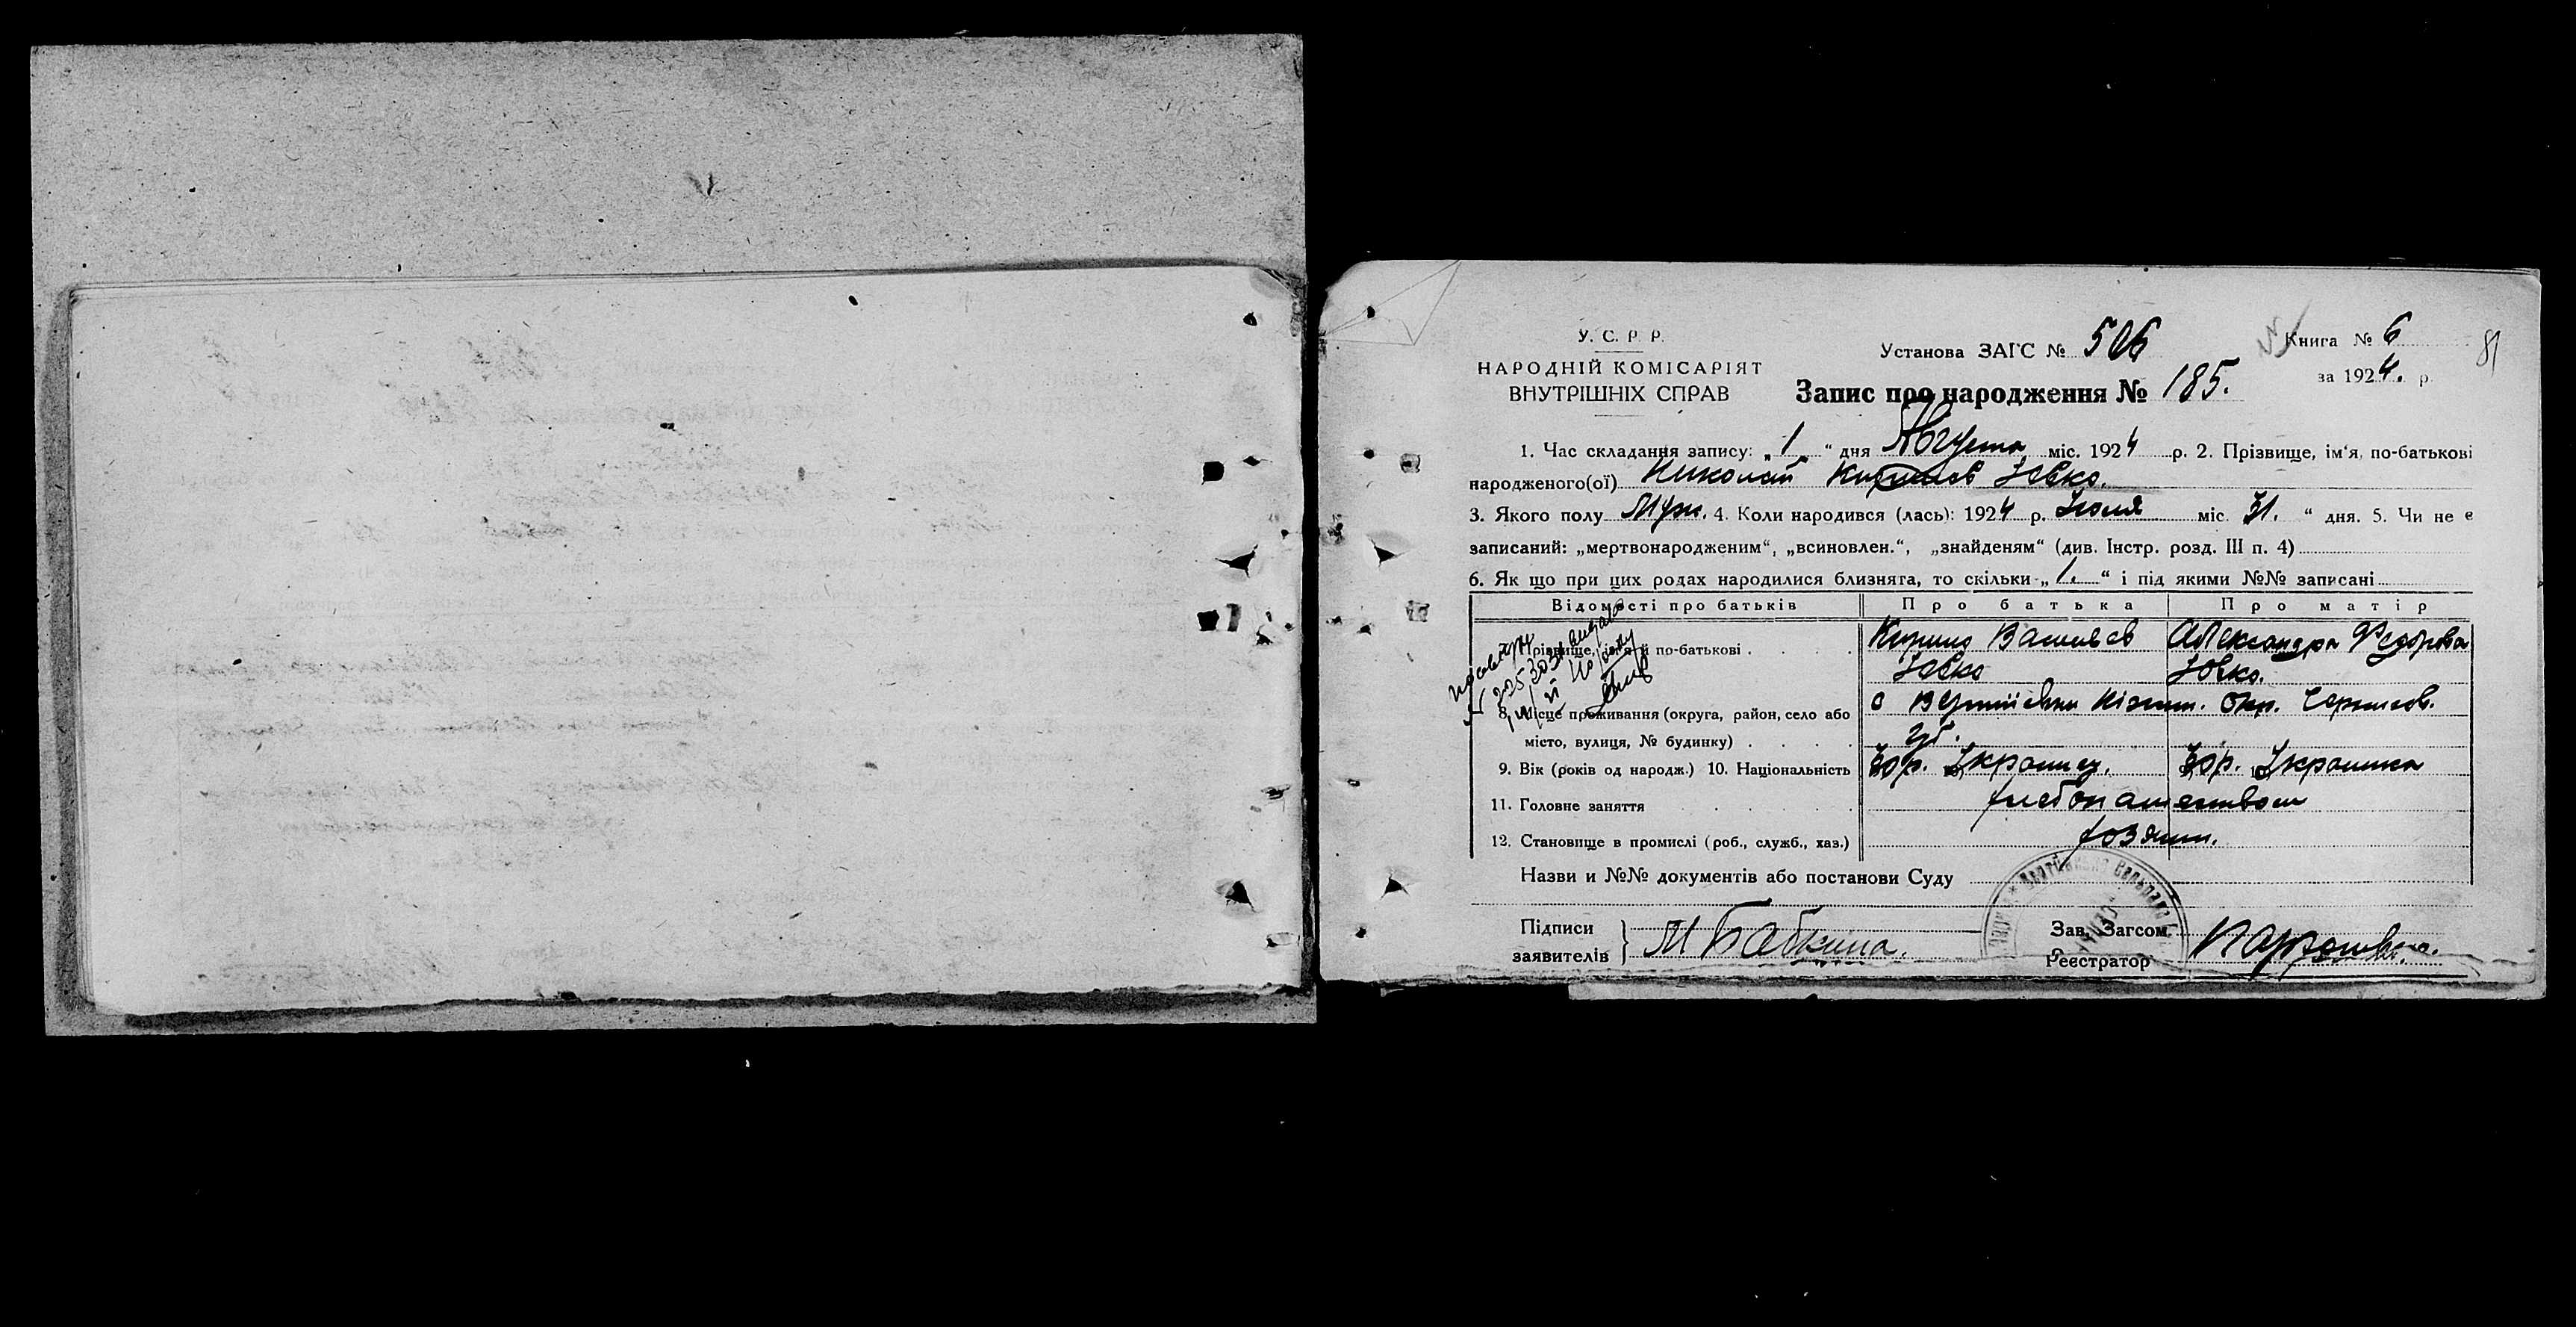 У. С. Р. Р.
НАРОДНІЙ КОМІСАРІЯТ
ВНУТРІШНІХ СПРАВ
Установа ЗАГС № 506
Книга № 6
81
за 1924. р.
Запис про народження № 185.
1. Час складання запису: „1“ дня Августа міс. 1924 р. 2. Прізвище, ім‘я, по-батькові
народженого(ої) Николай Юзко.
3. Якого полу Муж. 4. Коли народився (лась): 1924 р. Июля міс. 31. “ дня. 5. Чи не є
записаний: „мертвонародженим“, „всиновлен.“, „знайденям“ (див. Інстр. розд. III п. 4)
6. Як що при цих родах народилися близняга, то скільки „1.“ і під якими №№ записані
Відомості про батьків Про батька Про матір
7. Прізвище, ім'я й по-батькові Кирило Васильев Александра Федорова
8. Місце проживання (округа, район, село або с Вертіївки Ніжин. Окр. Чернигов.
місто, вулиця, № будинку) губ.
9. Вік (років од народж.) 10. Національність 30р. Украинец. 30р. Украинка
11. Головне заняття хлебопашеством
12. Становище в промислі (роб., служб., хаз.) хозяин.
Назви и №№ документів або постанови Суду
Підписи
заявителів М Бабкина.
Зав. Загсом
Реєстратор